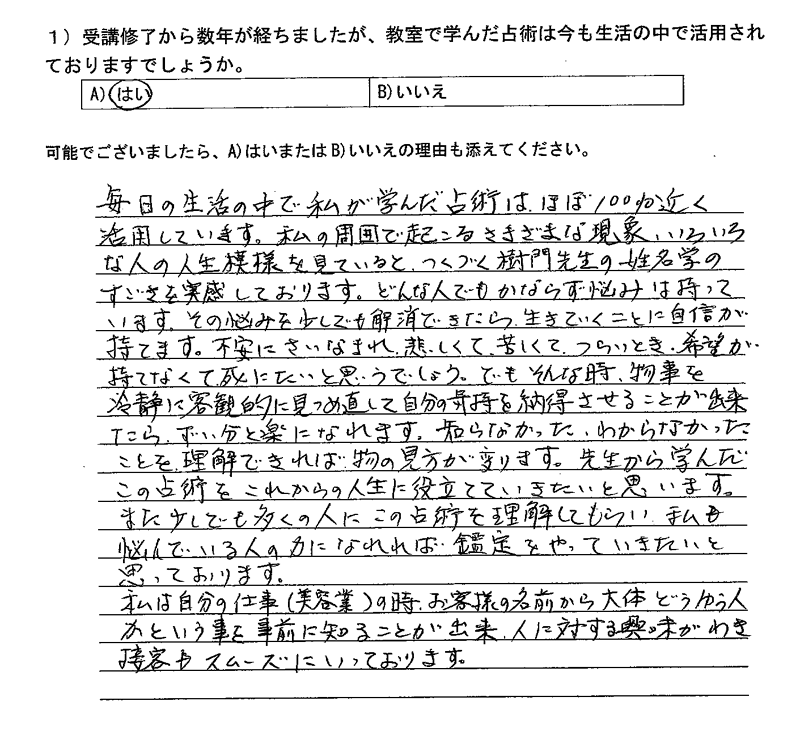 1）受講修了から数年が経ちましたが、教室で学んだ占術は今も生活の中で活用され
ておりますでしょうか。
A)はい B)いいえ
可能でございましたら、A)はいまたはB)いいえの理由も添えてください。
毎日の生活の中で私が学んだ占術は、ほぼ100%近く
活用しています。私の周囲で起こるさまざまな現象、いろいろ
な人の人生模様を見ていると、つくづく樹門先生の姓名学の
すごさを実感しております。どんな人でもかならず悩みは持って
います。その悩みを少しでも解消できたら、生きていくことに自信が
持てます。不安にさいなまれ、悲しくて、苦しくて、つらいとき、希望が
持てなくて死にたいと思うでしょう。でもそんな時、物事を
冷静に客観的に見つめ直して自分の気持を納得させることが出来
たら、ずい分と楽になれます。知らなかった、わからなかった
ことを、理解できれば物の見方が変ります。先生から学んだ
この占術をこれからの人生に役立てていきたいと思います。
また少しでも多くの人にこの占術を理解してもらい、私も
悩んでいる人の力になれれば、鑑定をやっていきたいと
思っております。
私は自分の仕事(美容業)の時、お客様の名前から大体どうゆう人
かという事を事前に知ることが出来、人に対する興味がわき
接客もスムーズにいっております。